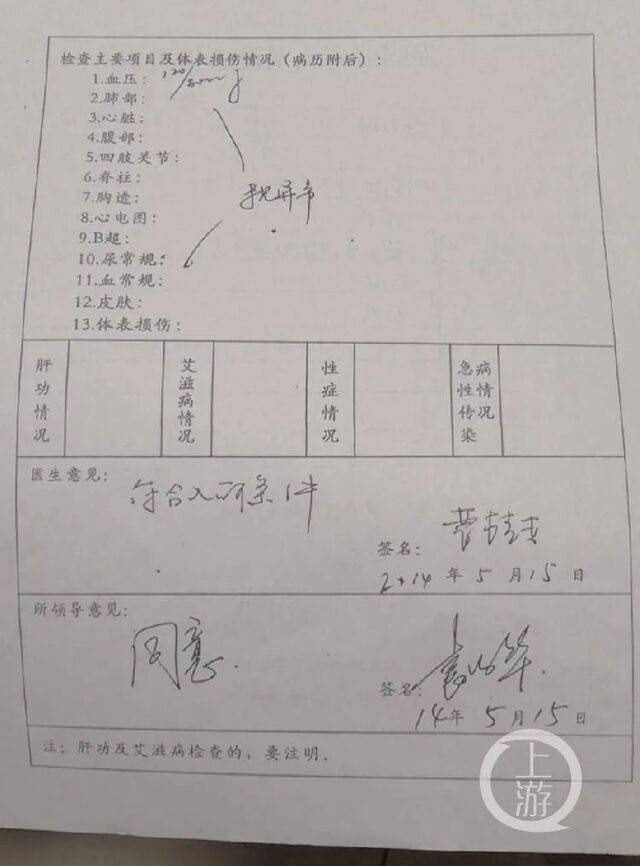 检查主要项目及体表损伤情况（病历附后）：
1.血压：120/80mmHg
2.肺部：
3.心脏：
4.腹部：
5.四肢关节：
6.脊柱：
7.胸透：
8.心电图：
9.B超：
10.尿常规：
11.血常规：
12.皮肤：
13.体表损伤：
肝功情况 艾滋病情况 性症情况 急性传染病情况
医生意见：
符合入所条件
签名：
2014年5月15日
所领导意见：
同意.
签名：
14年5月15日
注：肝功及艾滋病检查的，要注明.
上游